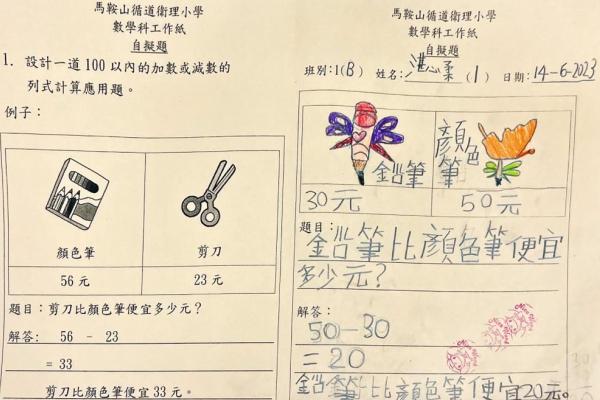 馬鞍山循道衛理小學
數學科工作紙
自擬題
1. 設計一道 100 以內的加數或減數的
列式計算應用題。
例子：
顏色筆 剪刀
56 元 23 元
題目：剪刀比顏色筆便宜多少元？
解答: 56 - 23
= 33
剪刀比顏色筆便宜 33 元。
馬鞍山循道衛理小學
數學科工作紙
自擬題
班別：1(B) 姓名：湛心柔(1) 日期：14-6-2023
鉛筆 顏色筆
30元 50元
題目：鉛筆比顏色筆便宜
多少元？
解答：
50-30
=20
鉛筆比顏色筆便宜20元。